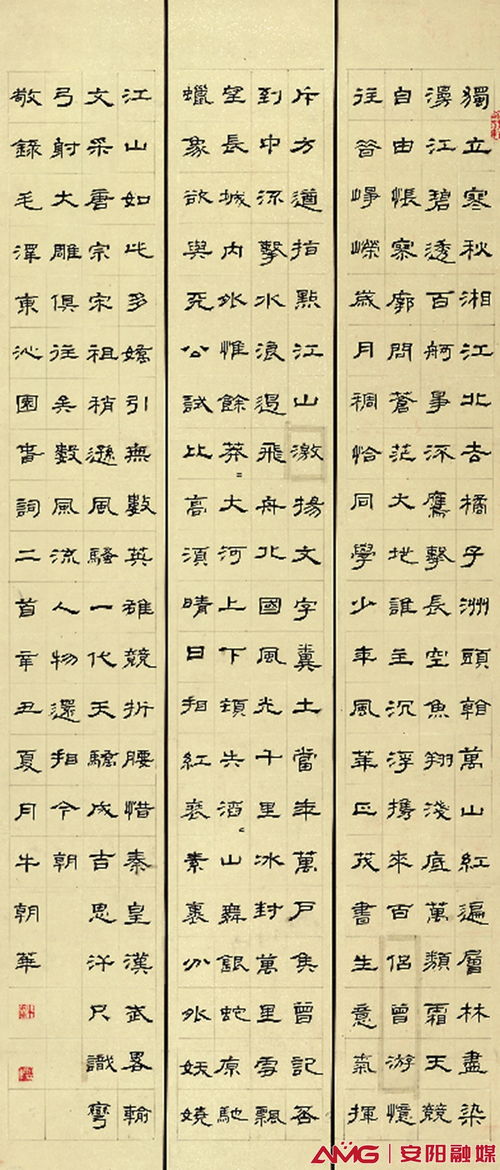 獨立寒秋湘江北去橘子洲頭看萬山紅遍層林盡染
漫江碧透百舸爭流鷹擊長空魚翔淺底萬類霜天競
自由悵寥廓問蒼茫大地誰主沉浮攜來百侶曾游憶
往昔崢嶸歲月稠恰同學少年風華正茂書生意氣揮
斥方遒指點江山激揚文字糞土當年萬戶侯曾記否
到中流擊水浪遏飛舟北國風光千里冰封萬里雪飄
望長城內外惟餘莽〻大河上下頓失滔〻山舞銀蛇原馳
蠟象欲與天公試比高須晴日看紅裝素裹分外妖嬈
江山如此多嬌引無數英雄競折腰惜秦皇漢武畧輸
文采唐宗宋祖稍遜風騷一代天驕成吉思汗只識彎
弓射大雕俱往矣數風流人物還看今朝
敬錄毛澤東沁園春詞二首辛丑夏月牛朝華
AMG | 安阳融媒